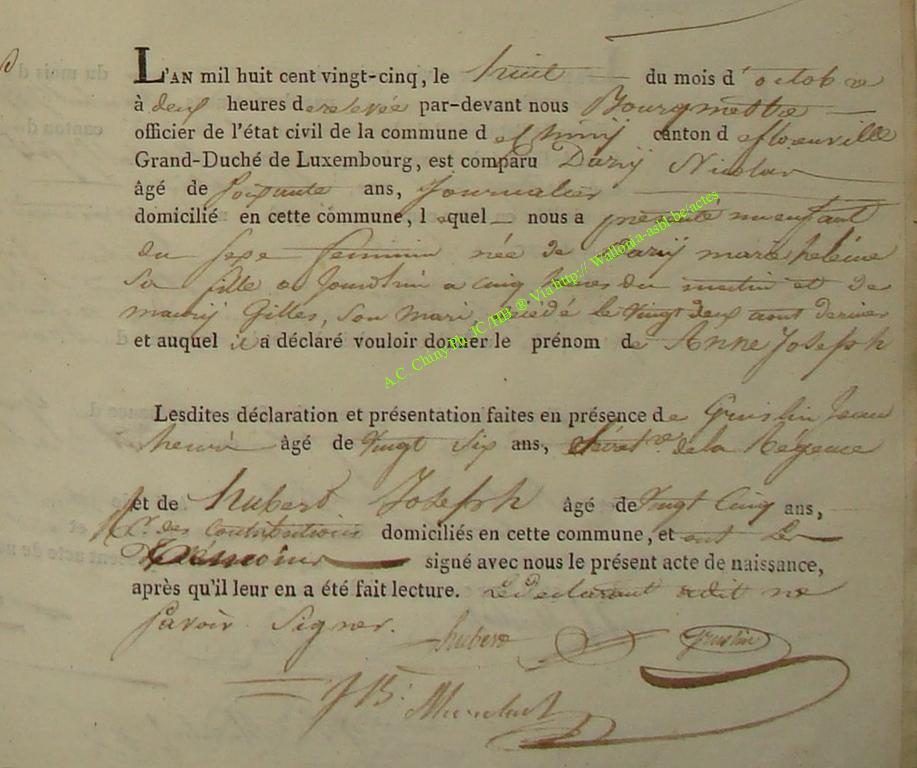 L'AN mil huit cent vingt-cinq, le huit du mois d'octobre
à deux heures de relevée par-devant nous Bourgmettre
officier de l'état civil de la commune de Chiny canton de florenville
Grand-Duché de Luxembourg, est comparu Dury Nicolas
âgé de soixante ans, Journalier
domicilié en cette commune, lequel nous a présenté un enfant
du sexe feminin née de Dury marie helène
sa fille a cinq heures du matin et de
Gilles, son mari, décédé le vingt deux aout dernier
et auquel il a déclaré vouloir donner le prénom de Anne Joseph
Lesdites déclaration et présentation faites en présence de Gruslin Jean
henri âgé de vingt six ans, de la Régence
et de hubert Joseph âgé de vingt cinq ans,
des contributions domiciliés en cette commune, et ont les
temoins signé avec nous le présent acte de naissance,
après qu'il leur en a été fait lecture. le declarant a dit ne
savoir signer.
hubert Gruslin
JB:
A.C. Chiny Ph. JC /HB ® Via http:// Wallonia-asbl-be/actes